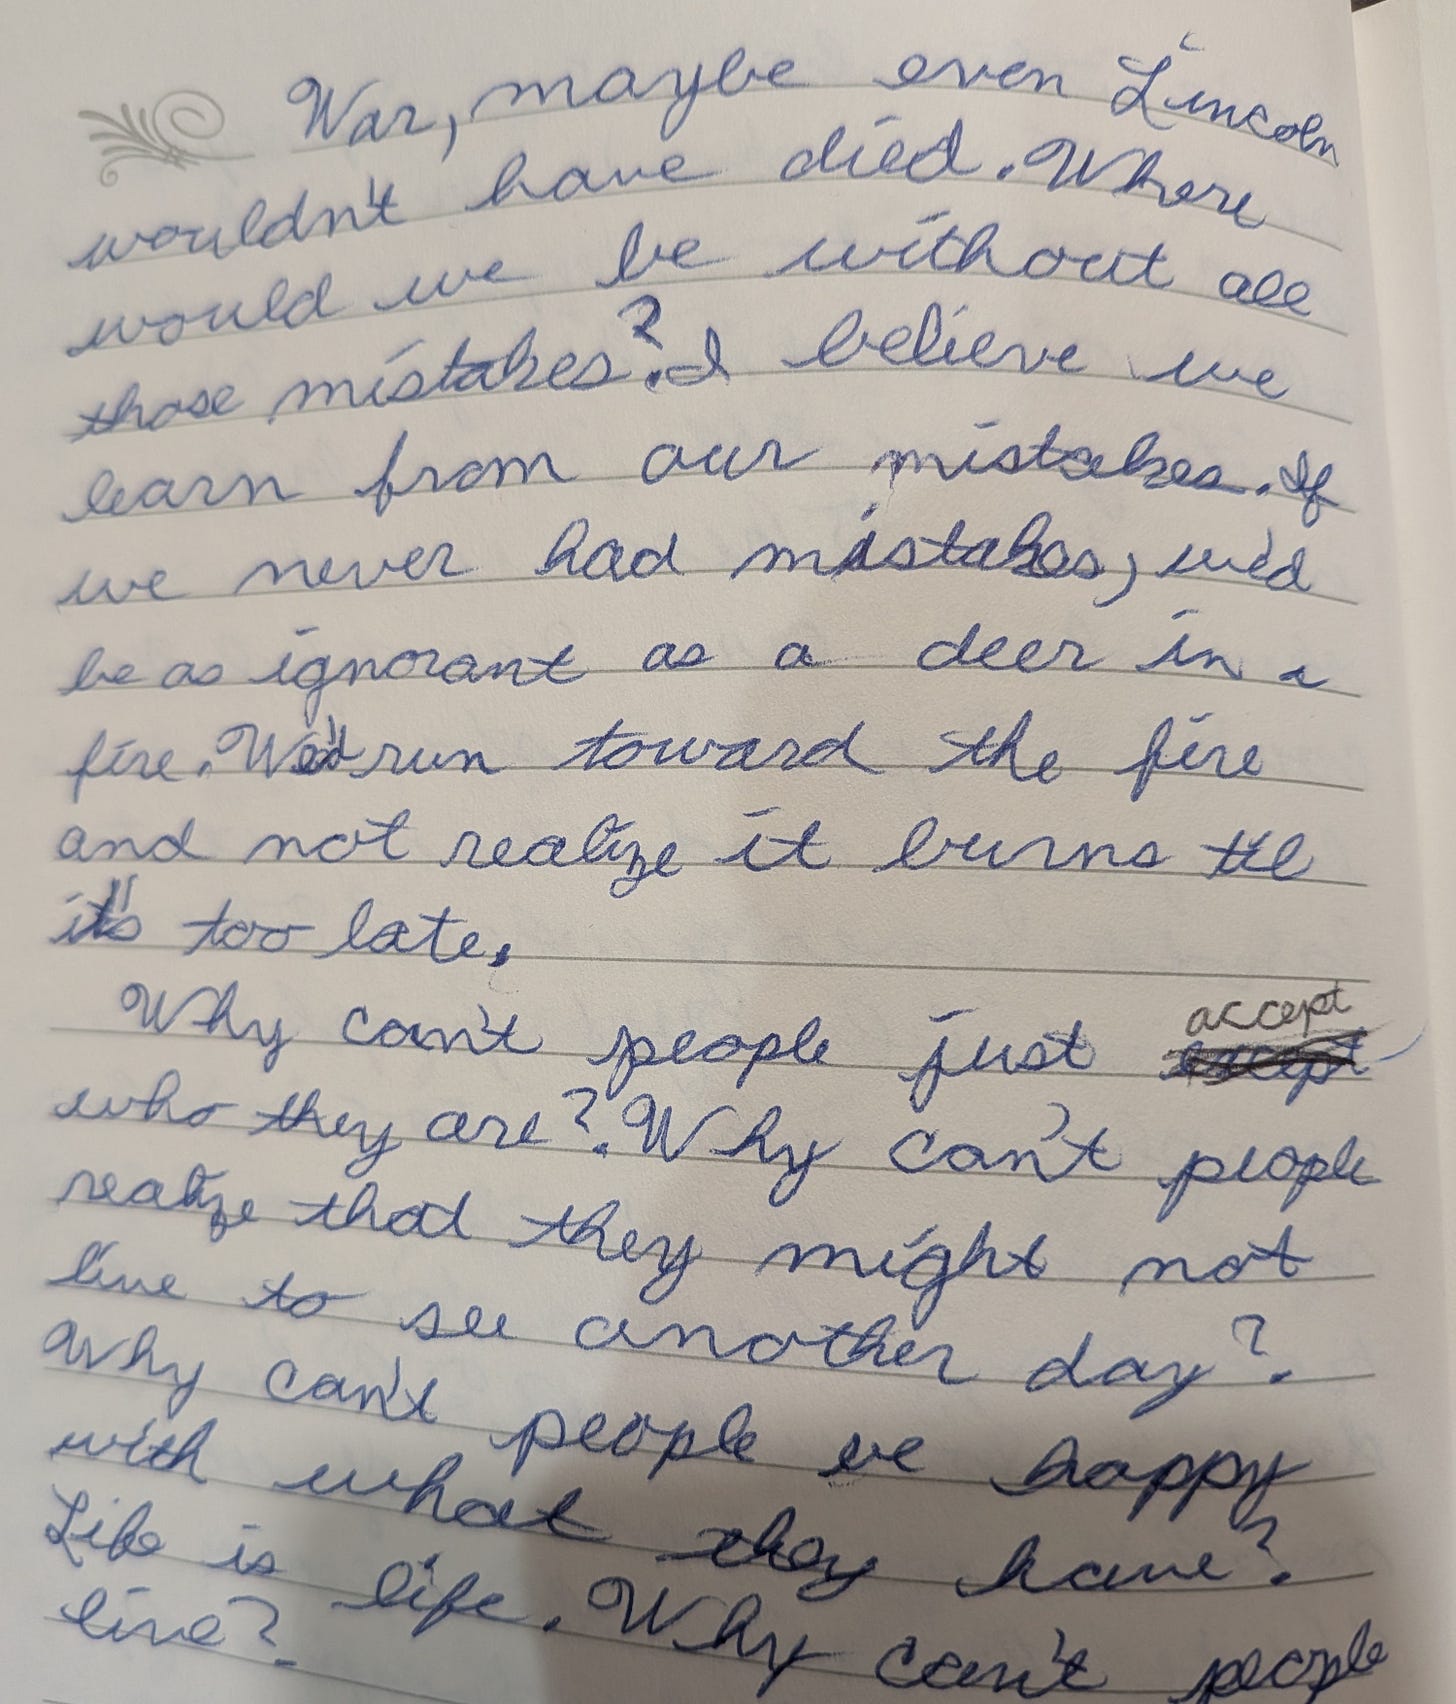 War, maybe even Lincoln
wouldn't have died. Where
would we be without all
those mistakes? I believe we
learn from our mistakes. If
we never had mistakes, we'd
be as ignorant as a deer in a
fire. We'd run toward the fire
and not realize it burns til
it's too late.
accept
Why can't people just except
who they are? Why can't people
realize that they might not
live to see another day?
Why can't people be happy
with what they have?
Life is life. Why can't people
live?